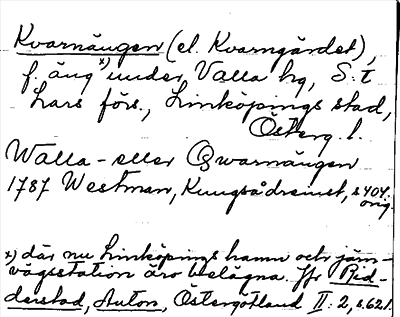 Kvarnängen (el. Kvarngärdet),
f. äng x) under Valla hg, S:t
Lars förs., Linköpings stad,
Österg. l.
Walla- eller Qwarnängen
1787 Westman, Kungsådrainst, s. 404.
orig.
x) där nu Linköpings hamn och järn-
vägsstation äro belägna. Jfr Rid-
derstad, Anton, Östergötland II: 2, s. 621.